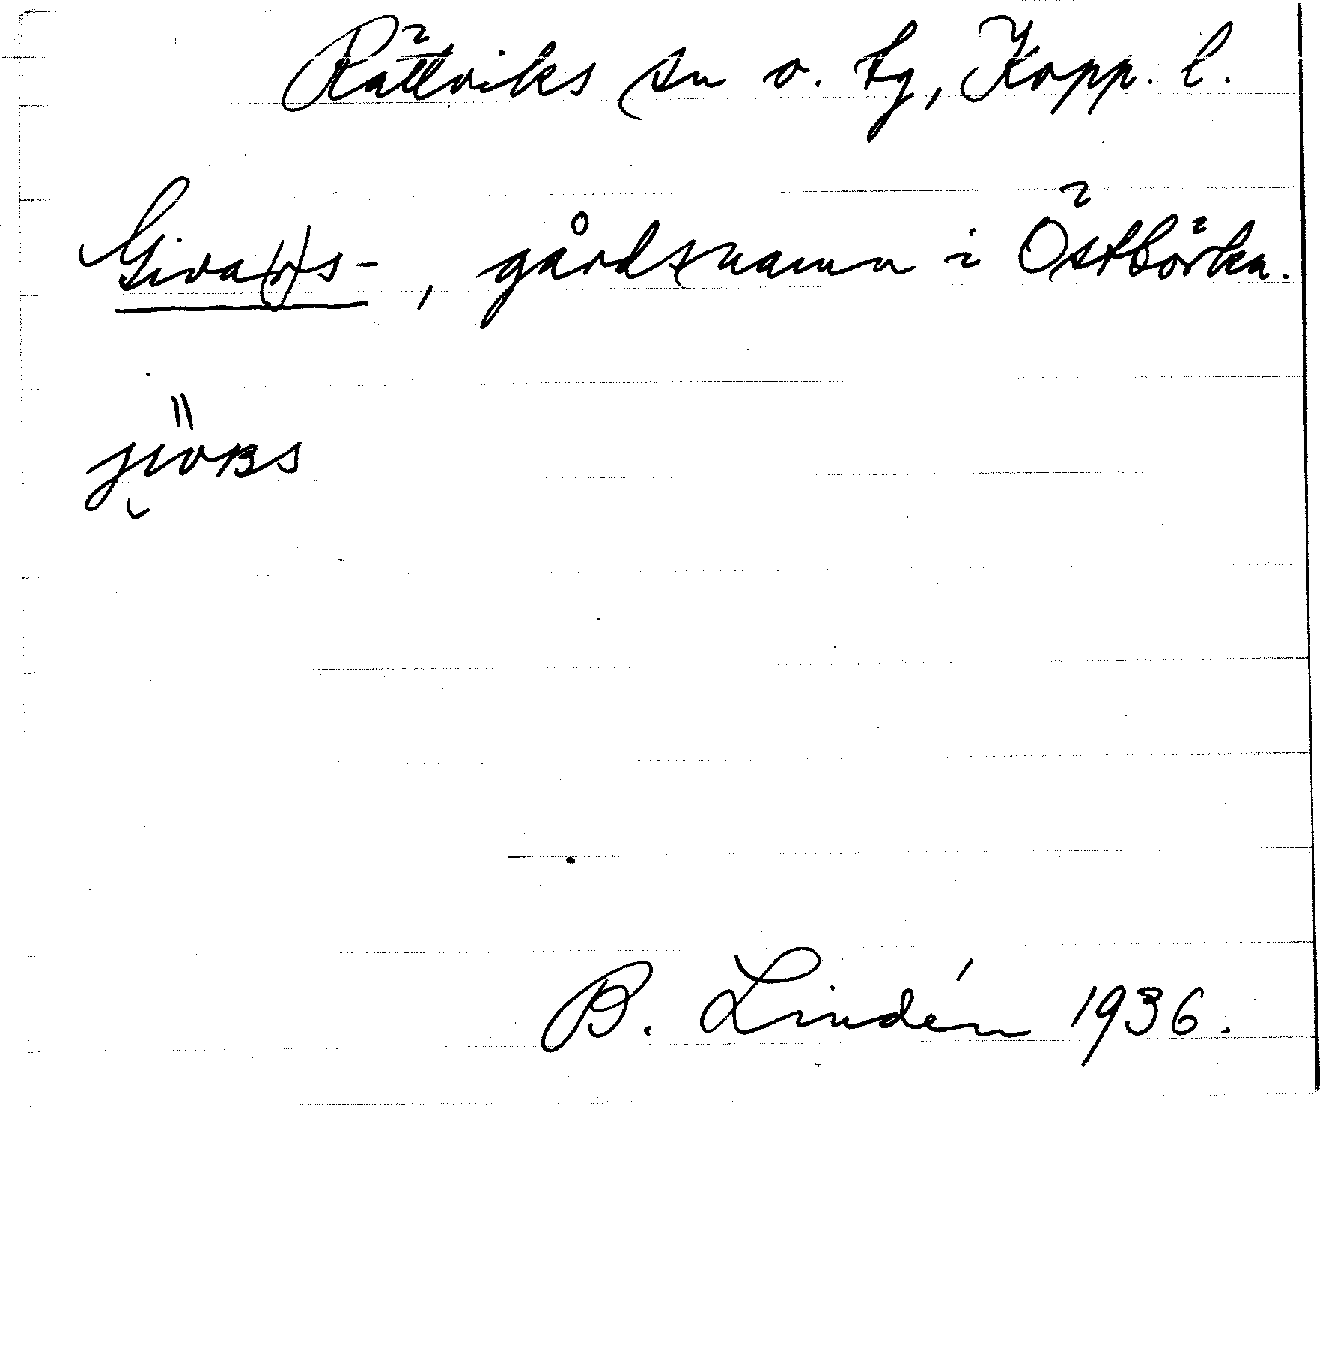 Rättviks sn o. tg, Kopp. l.
Giva(r)s-, gårdsnamn i Östbörka.
B. Lindén 1936.